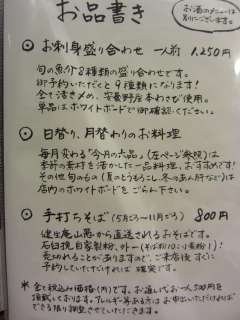 お品書き
お酒のメニューは
別にございます。
◎ お刺身盛り合わせ 一人前 1,250円
旬の魚介8種類の盛り合わせです。
御予約いただくと9種類になります!
全て活き〆、安曇野産本わさび使用。
単品はホワイトボードで御確認ください。
◎ 日替り、月替わりのお料理
毎月変わる「今月の六品」(左ページ参照)は
季節の素材を活かした一品料理、おすすめです!
その他旬のもの(夏のとうもろこし、冬のあん肝など)は
店内のホワイトボードをごらん下さい。
◎ 手打ちそば(5月ごろ〜11月ごろ) 800円
から直送されるおそばです。
石臼挽自家製粉、外一(そば粉10:小麦粉1)!
売切れることがありますので、ご来店後すぐに
予約していただければ確実です。
※ 全て税込み価格(円)です。お通し代お一人500円を
頂戴しております。アレルギー等ある方はお申し出いただければ
できる限り調整させていただきます。